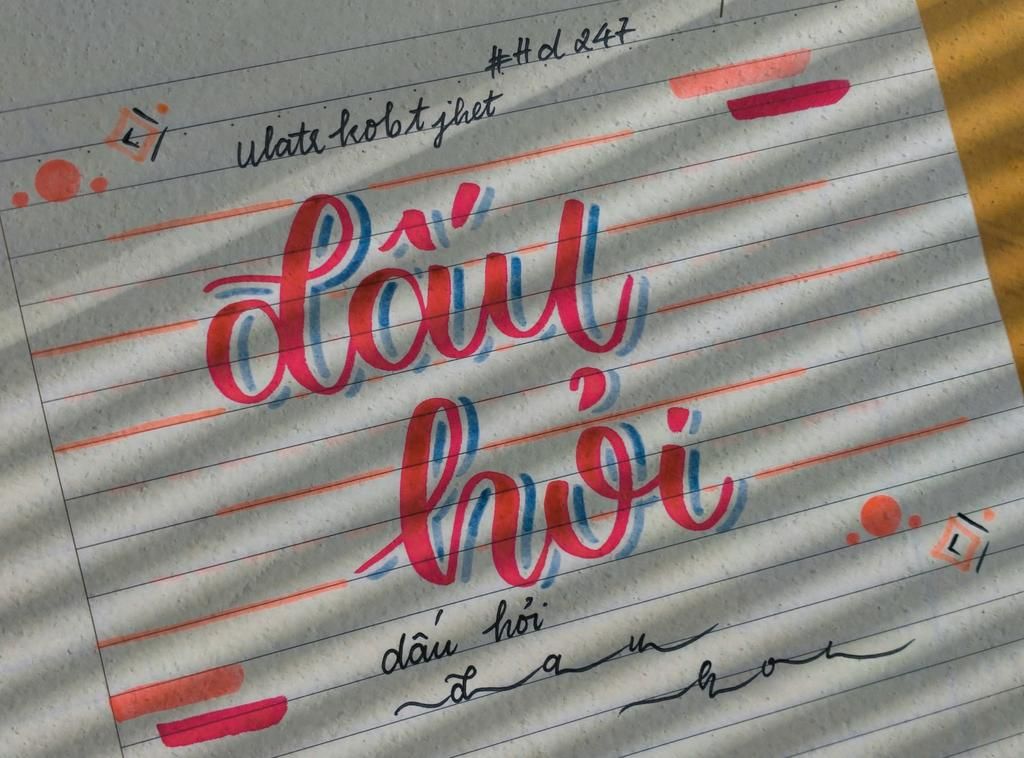 #Hd 247
ulatr kobt jhet
dấu
hỏi
dấu hỏi
d a u
h o i